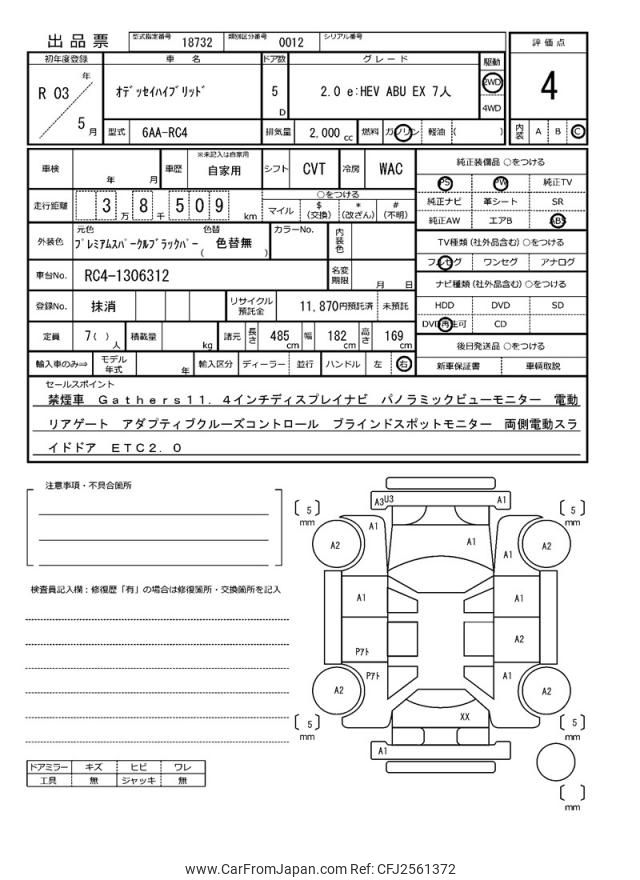 出品票 型式指定番号 18732 類別区分番号 0012 シリアル番号
評価点
4
内装 A B C
初年度登録 車名 ドア数 グレード 駆動
R 03 年 5 月
ｵﾃﾞｯｾｲﾊｲﾌﾞﾘｯﾄﾞ 5 D 2.0 e:HEV ABU EX 7人 2WD 4WD
型式 6AA-RC4 排気量 2,000 cc 燃料 ガソリン 軽油 ( )
車検 年 月 車歴 ※未記入は自家用 自家用 シフト CVT 冷房 WAC
走行距離 3 万 8 千 5 0 9 km
○をつける
マイル $ (交換) * (改ざん) # (不明)
外装色 元色 ﾌﾟﾚﾐｱﾑｽﾊﾟｰｸﾙﾌﾞﾗｯｸﾊﾟｰ 色替 ( 色替無 ) カラーNo. 内装色
車台No. RC4-1306312 名変期限 月 日
登録No. 抹消 リサイクル預託金 11,870円預託済 未預託
定員 7( ) 人 積載量 kg 諸元 長さ 485 cm 幅 182 cm 高さ 169 cm
輸入車のみ⇒ モデル年式 年 輸入区分 ディーラー 並行 ハンドル 左 右
純正装備品 ○をつける
PS PW 純正TV
純正ナビ 革シート SR
純正AW エアB ABS
TV種類 (社外品含む) ○をつける
フルセグ ワンセグ アナログ
ナビ種類 (社外品含む) ○をつける
HDD DVD SD
DVD再生可 CD
後日発送品 ○をつける
新車保証書 車輌取説
セールスポイント
禁煙車 Ｇａｔｈｅｒｓ１１．４インチディスプレイナビ パノラミックビューモニター 電動
リアゲート アダプティブクルーズコントロール ブラインドスポットモニター 両側電動スラ
イドドア ＥＴＣ２．０
注意事項・不具合箇所
検査員記入欄：修復歴「有」の場合は修復箇所・交換箇所を記入
ドアミラー キズ ヒビ ワレ
工具 無 ジャッキ 無
5 mm A3 U3 A1 5 mm
A1 A1 A1
A2 A2
A1 A1
A2
Pｱﾄ
Pｱﾄ A1
A2 A2
XX
5 mm A1 5 mm
mm
www.CarFromJapan.com Ref: CFJ2561372